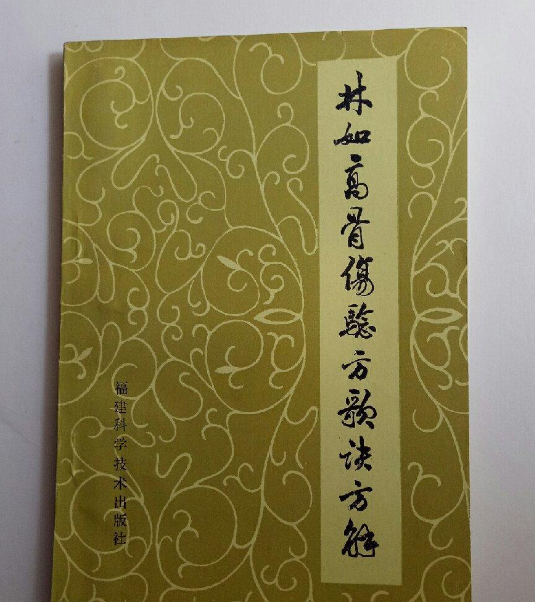 林如高骨傷驗方歌訣方解
福建科学技术出版社